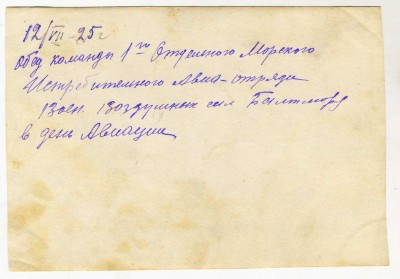 12/VII-25г
Обед команды 1го Отдельного Морского
Истребительного Авиа-отряда
Воен. Воздушных сил Балтморя
в день Авиации